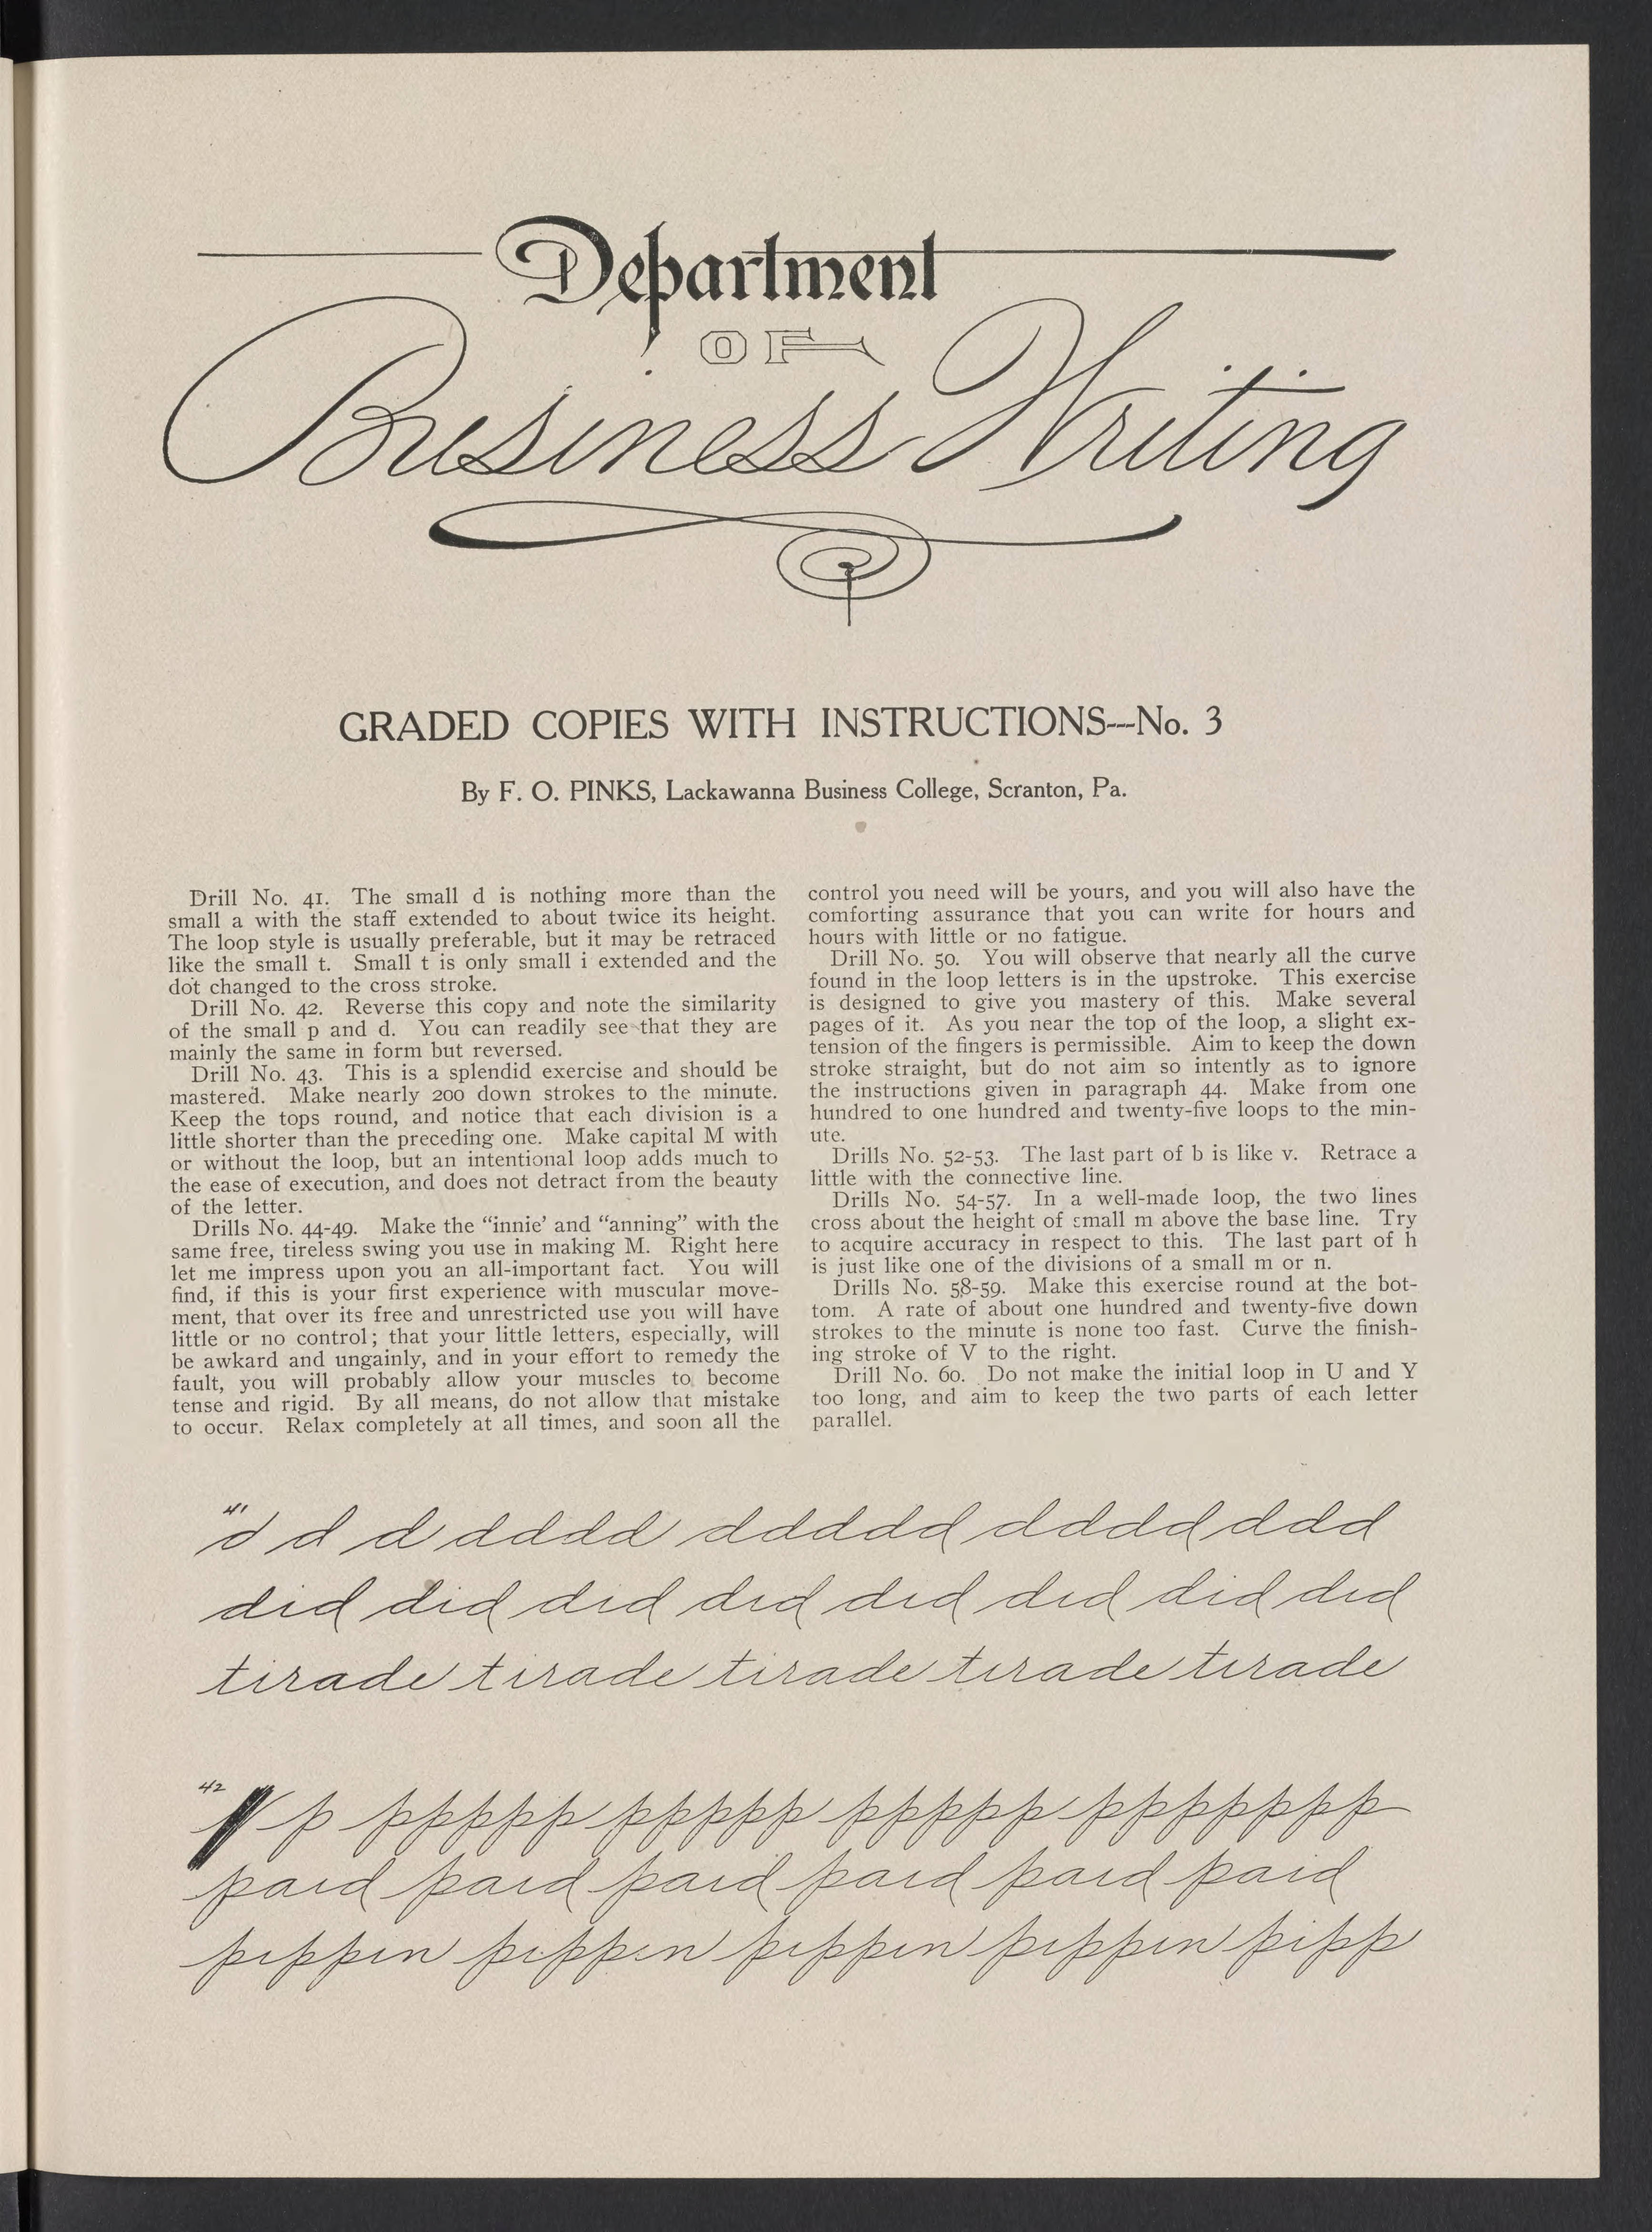 Department
OF
Business Writing
GRADED COPIES WITH INSTRUCTIONS—No. 3
By F. O. PINKS, Lackawanna Business College, Scranton, Pa.
Drill No. 41. The small d is nothing more than the
small a with the staff extended to about twice its height.
The loop style is usually preferable, but it may be retraced
like the small t. Small t is only small i extended and the
dot changed to the cross stroke.
Drill No. 42. Reverse this copy and note the similarity
of the small p and d. You can readily see that they are
mainly the same in form but reversed.
Drill No. 43. This is a splendid exercise and should be
mastered. Make nearly 200 down strokes to the minute.
Keep the tops round, and notice that each division is a
little shorter than the preceding one. Make capital M with
or without the loop, but an intentional loop adds much to
the ease of execution, and does not detract from the beauty
of the letter.
Drills No. 44-49. Make the "innie' and "anning" with the
same free, tireless swing you use in making M. Right here
let me impress upon you an all-important fact. You will
find, if this is your first experience with muscular move-
ment, that over its free and unrestricted use you will have
little or no control; that your little letters, especially, will
be awkard and ungainly, and in your effort to remedy the
fault, you will probably allow your muscles to become
tense and rigid. By all means, do not allow that mistake
to occur. Relax completely at all times, and soon all the
control you need will be yours, and you will also have the
comforting assurance that you can write for hours and
hours with little or no fatigue.
Drill No. 50. You will observe that nearly all the curve
found in the loop letters is in the upstroke. This exercise
is designed to give you mastery of this. Make several
pages of it. As you near the top of the loop, a slight ex-
tension of the fingers is permissible. Aim to keep the down
stroke straight, but do not aim so intently as to ignore
the instructions given in paragraph 44. Make from one
hundred to one hundred and twenty-five loops to the min-
ute.
Drills No. 52-53. The last part of b is like v. Retrace a
little with the connective line.
Drills No. 54-57. In a well-made loop, the two lines
cross about the height of small m above the base line. Try
to acquire accuracy in respect to this. The last part of h
is just like one of the divisions of a small m or n.
Drills No. 58-59. Make this exercise round at the bot-
tom. A rate of about one hundred and twenty-five down
strokes to the minute is none too fast. Curve the finish-
ing stroke of V to the right.
Drill No. 60. Do not make the initial loop in U and Y
too long, and aim to keep the two parts of each letter
parallel.
41 d d d ddddd ddddd ddddddd
did did did did did did did did
tirade tirade tirade tirade tirade
42 p ppppp ppppp ppppp ppppppp
paid paid paid paid paid paid
pippin pippin pippin pippin pipp